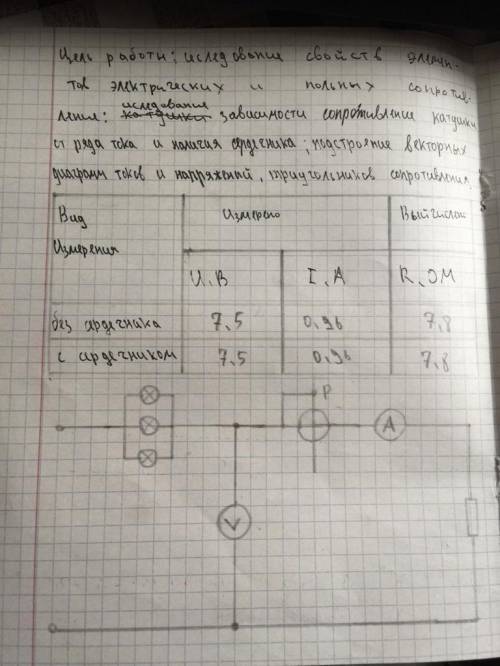 Цель работы: иследование свойств элемен-
тов электрических и польных сопротив-
ления: иследование зависимости сопротивление катушки
от ряда тока и налигия сердечника; подстроение векторных
диаграмм токов и напряжений, триугольников сопротивления.
Вид Измерения
Измерено
Вычислен
U, В
I, А
R, ОМ
без сердечника
7,5
0,96
7,8
с сердечником
7,5
0,96
7,8
P
A
V